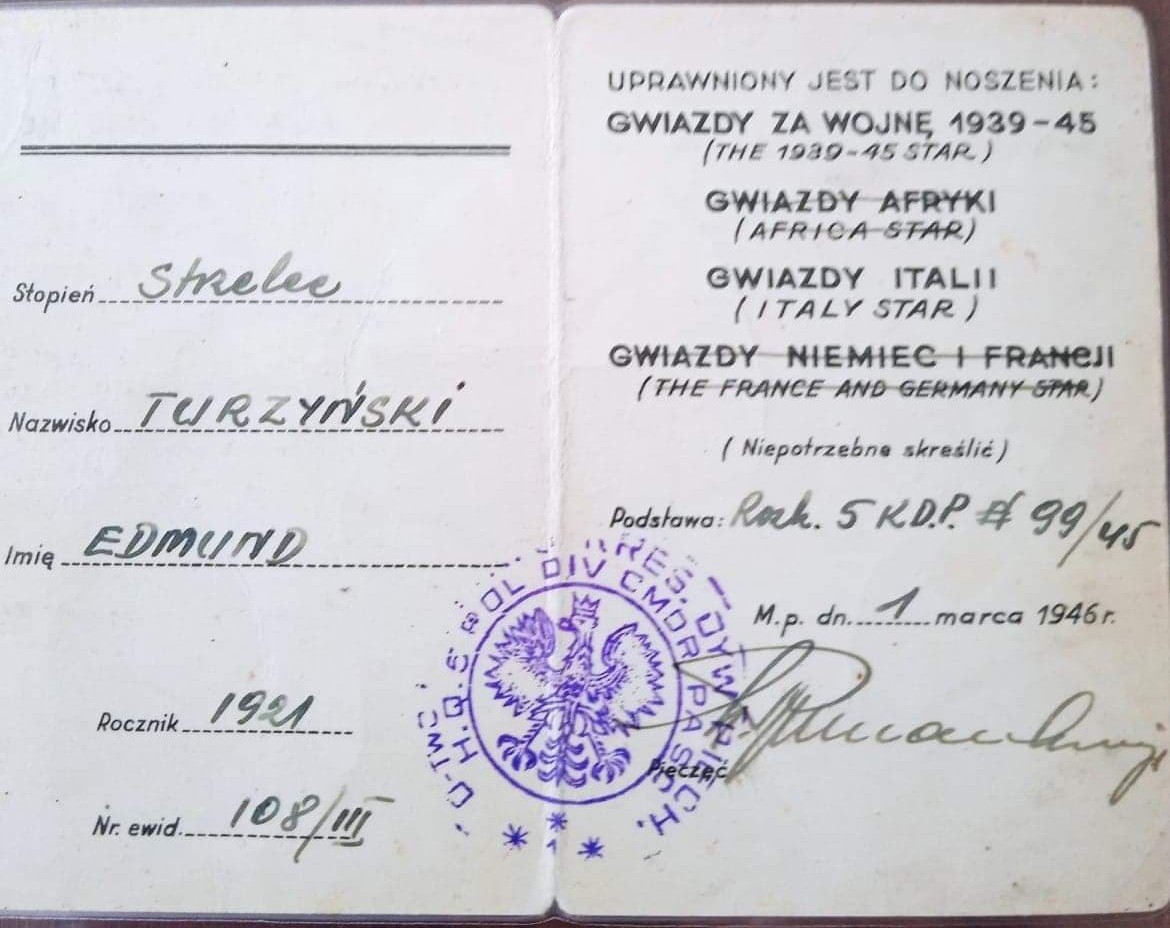 Stopień Strzelec
Nazwisko TURZYŃSKI
Imię EDMUND
Rocznik 1921
Nr. ewid. 108/III
UPRAWNIONY JEST DO NOSZENIA:
GWIAZDY ZA WOJNĘ 1939-45
(THE 1939-45 STAR)
GWIAZDY AFRYKI
(AFRICA STAR)
GWIAZDY ITALII
(ITALY STAR)
GWIAZDY NIEMIEC I FRANCJI
(THE FRANCE AND GERMANY STAR)
(Niepotrzebne skreślić)
Podstawa: Rozk. 5 KD.P. # 99/45
M.p. dn. 1 marca 1946 r.
Pieczęć
D-TWO KRES. DYW. PIECH.
H.Q. 5 POL DIV